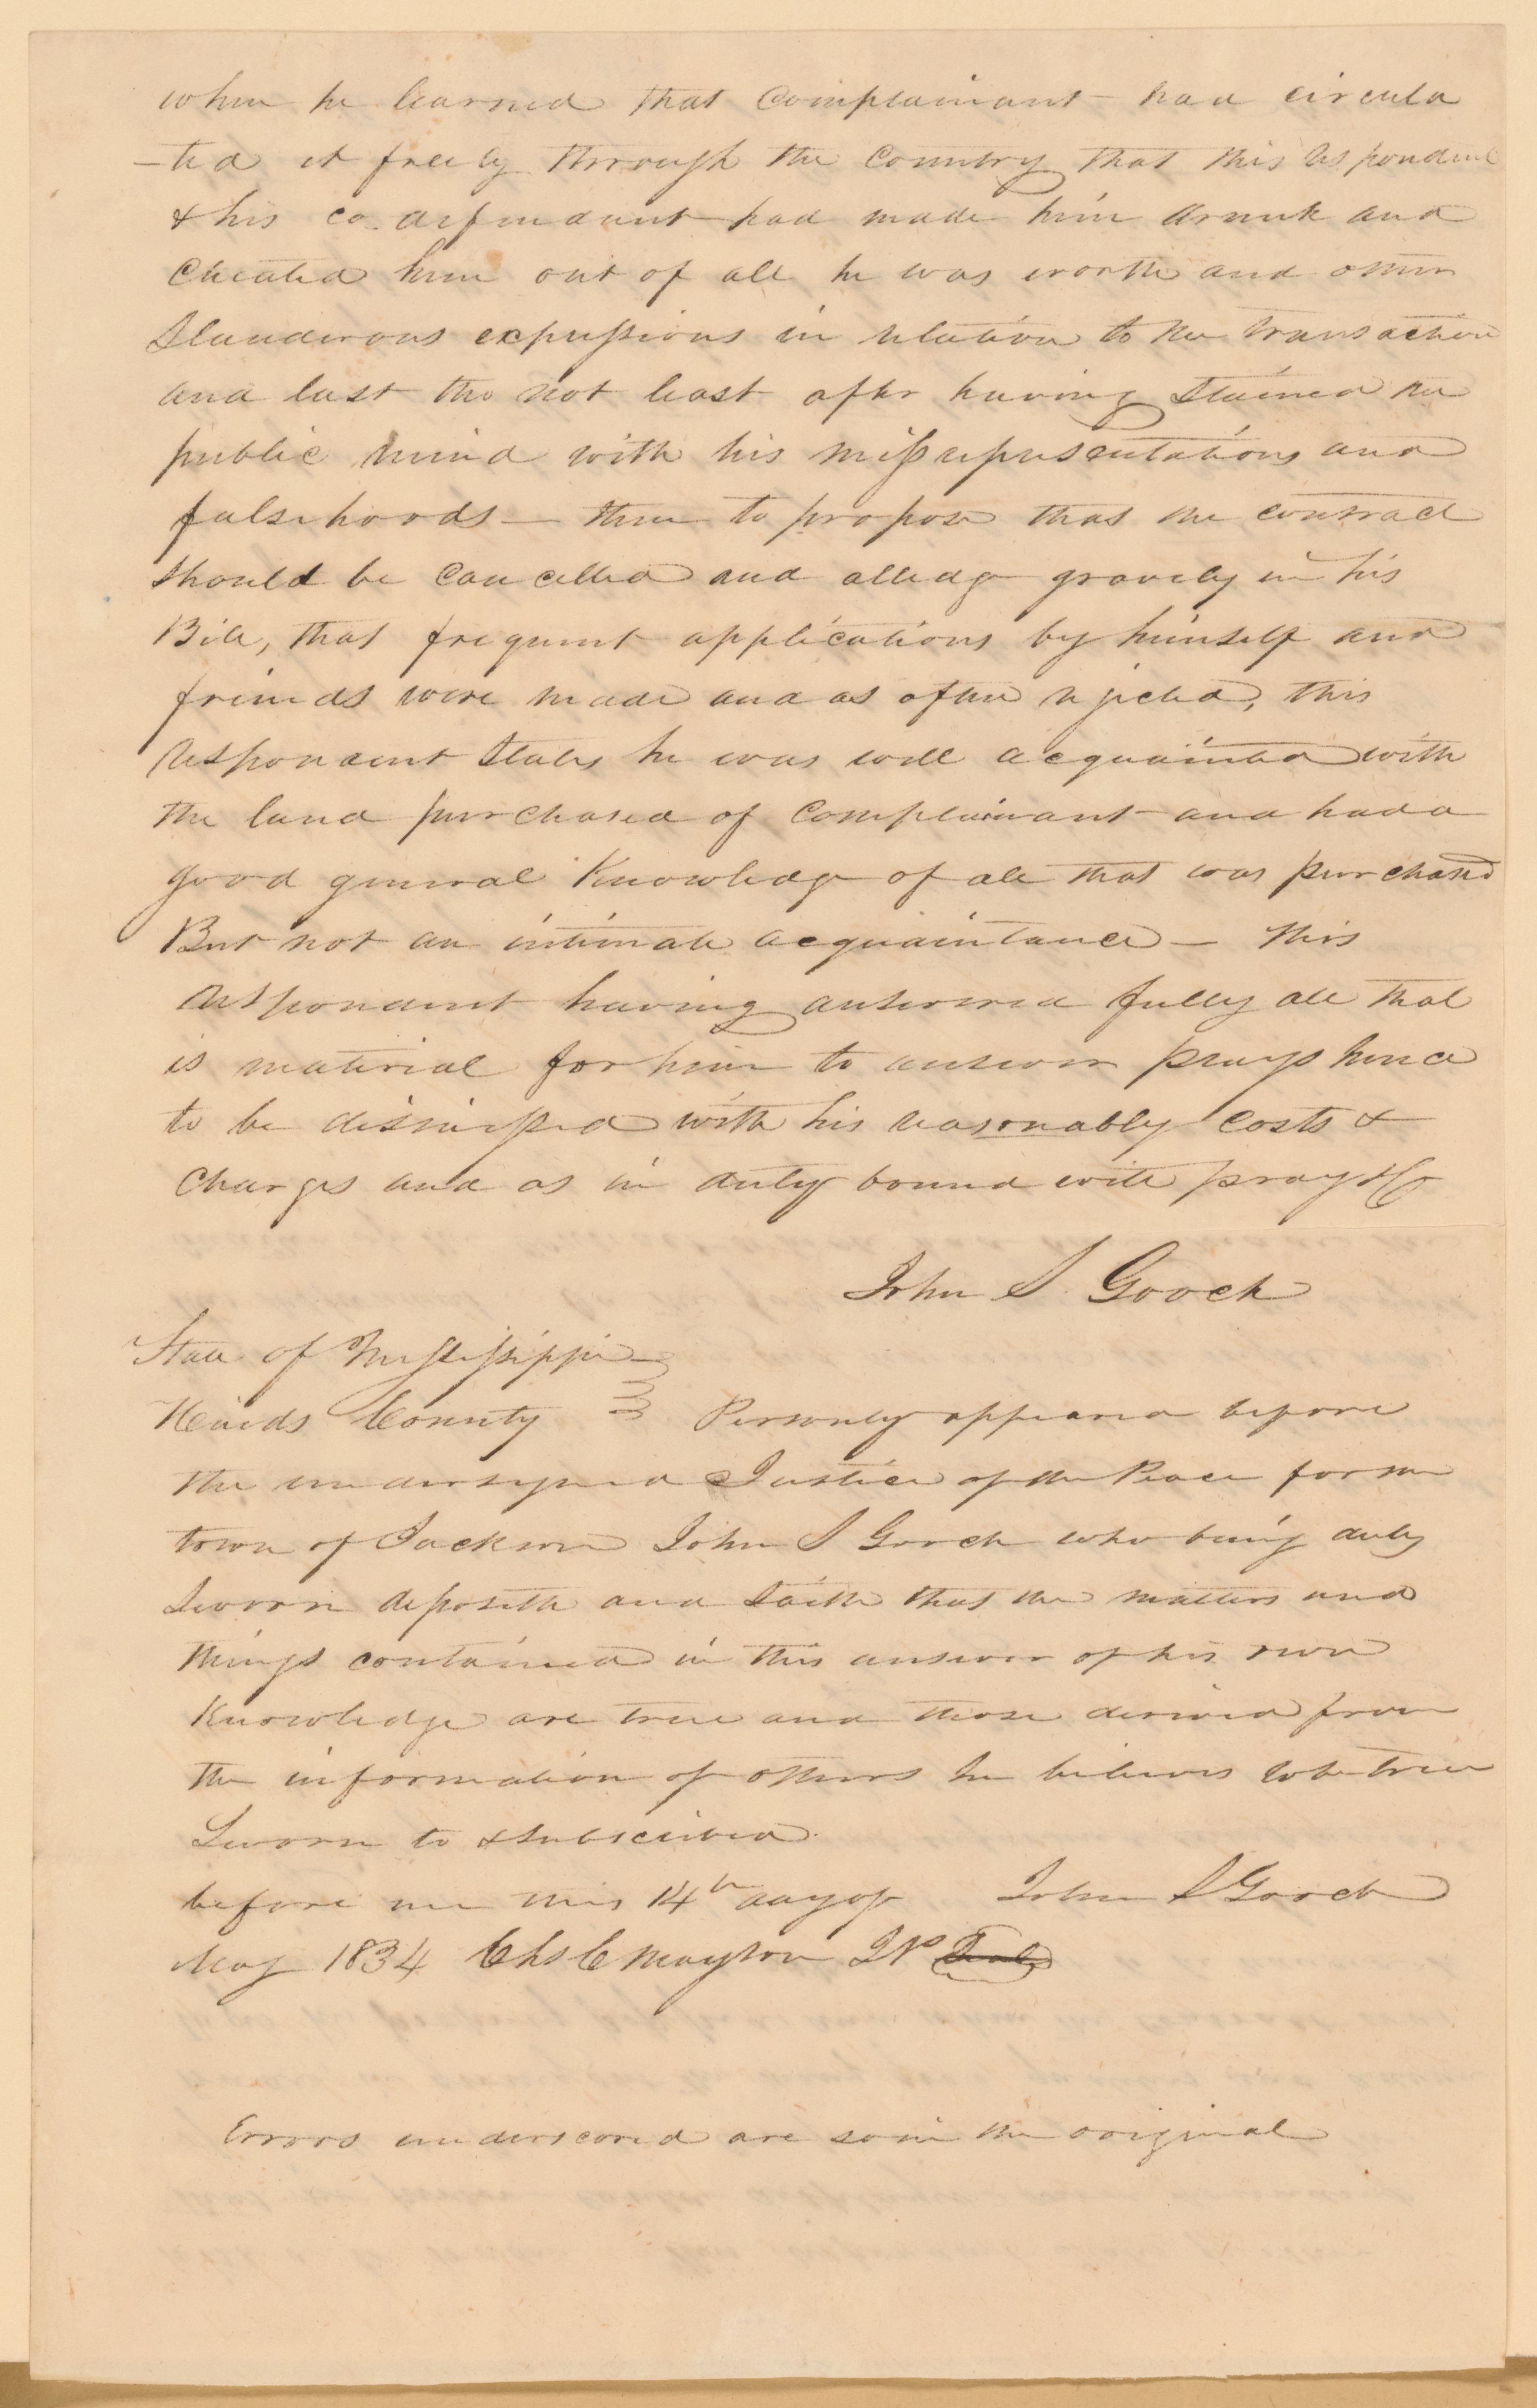 when he learned that Complainant had circula
-ted it freely through the Country that this respondent
& his co. defendant had made him drunk and
cheated him out of all he was worth and other
Slanderous expressions in relation to the transaction
and last tho not least after having stained the
public mind with his missrepresentations and
falsehoods — then to propose that the contract
should be cancelled and alledge gravely in his
Bill, that frequent applications by himself and
friends were made and as often rejected, this
respondent states he was well acquainted with
the land purchased of Complainant and had a
good general Knowledge of all that was purchased
But not an intimate acquaintance — This
respondent having answered fully all that
is material for him to answer prays hence
to be dismissed with his reasonably costs &
Charges and as in duty bound will pray &c
John S. Gooch
State of Mississippi
Hinds County Personly appeared before
the undersigned Justice of the Peace for the
town of Jackson John S Gooch who being duly
Sworn deposeth and saith that the matters and
things contained in this answer of his own
Knowledge are true and those derived from
the information of others he believes to be true
Sworn to & subscribed
before me this 14th day of John S Gooch
May 1834 Chs C Mayson JP Seal
Errors underscored are so in the original